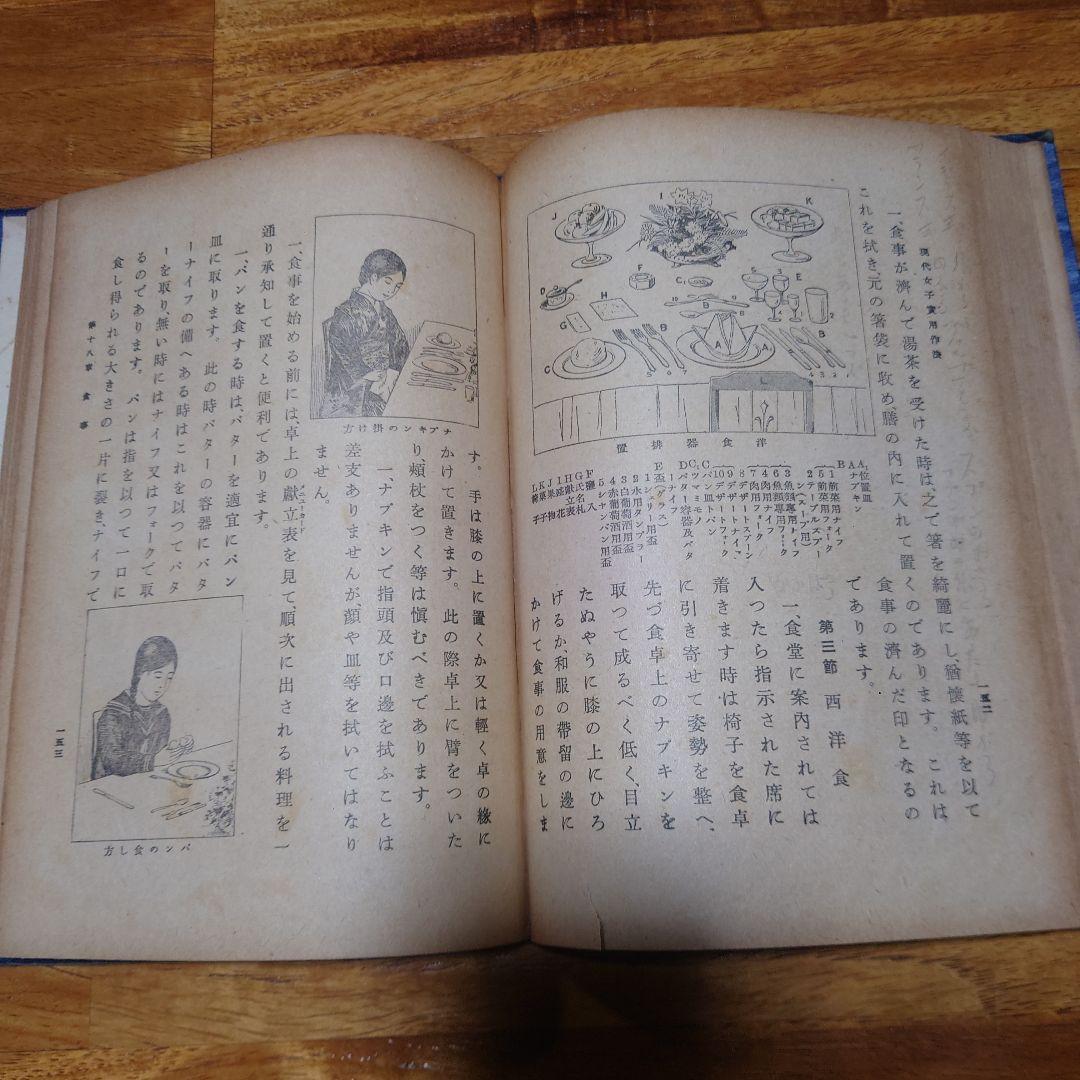 現代女子實用作法
一五二
一、食事が濟んで湯茶を受けた時は、之で箸を綺麗にし、猶懷紙等を以て
これを拭き、元の箸袋に收め、膳の内に入れて置くのであります。これは
食事の濟んだ印となるの
であります。
第三節 西洋食
一、食堂に案内されては
入つたら指示された席に
着きます時は椅子を食卓
に引き寄せて姿勢を整へ、
先づ食卓上のナプキンを
取つて成るべく低く、目立
たぬやうに膝の上にひろ
げるか、和服の帶留の邊に
かけて食事の用意をしま
洋食器排置
A 位置皿
A ナプキン
B
1 前菜用ナイフ
5 前菜用フォーク
2 テーブルスプー
ン(スープ用)
3 魚類專用ナイフ
6 魚類專用フォーク
4 肉用ナイフ
7 肉用フォーク
8 デザートスプーン
9 デザートナイフ
10 デザートフォーク
C パン皿トパン
C ツマミモノ
D バター容器及バタ
ーナイフ
E 盃(グラス)
1 シェリー用盃
2 水用タンブラー
3 白葡萄酒用盃
4 赤葡萄酒用盃
5 シャンパン用盃
F 鹽入
G 氏名札
H 獻立表
I 盛花
J 果物
K 菓子
L 椅子
す。手は膝の上に置くか又は輕く卓の緣に
かけて置きます。此の際卓上に臂をついた
り、頰杖をつく等は愼むべきであります。
一ナプキンで指頭及び口邊を拭ふことは
差支ありませんが、顏や皿等を拭いてはなり
ません。
ナプキンの掛け方
一、食事を始める前には、卓上の獻立表を見て、順次に出される料理を一
メニューカード
通り承知して置くと便利であります。
一、パンを食する時は、バターを適宜にパン
皿に取ります。此の時バターの容器にバタ
ーナイフの備へある時はこれを以つてバタ
ーを取り、無い時にはナイフ又はフォークで取
るのであります。パンは指を以つて一口に
食し得られる大きさの一片に裂き、ナイフで
パンの食し方
第十八章 食事
一五三